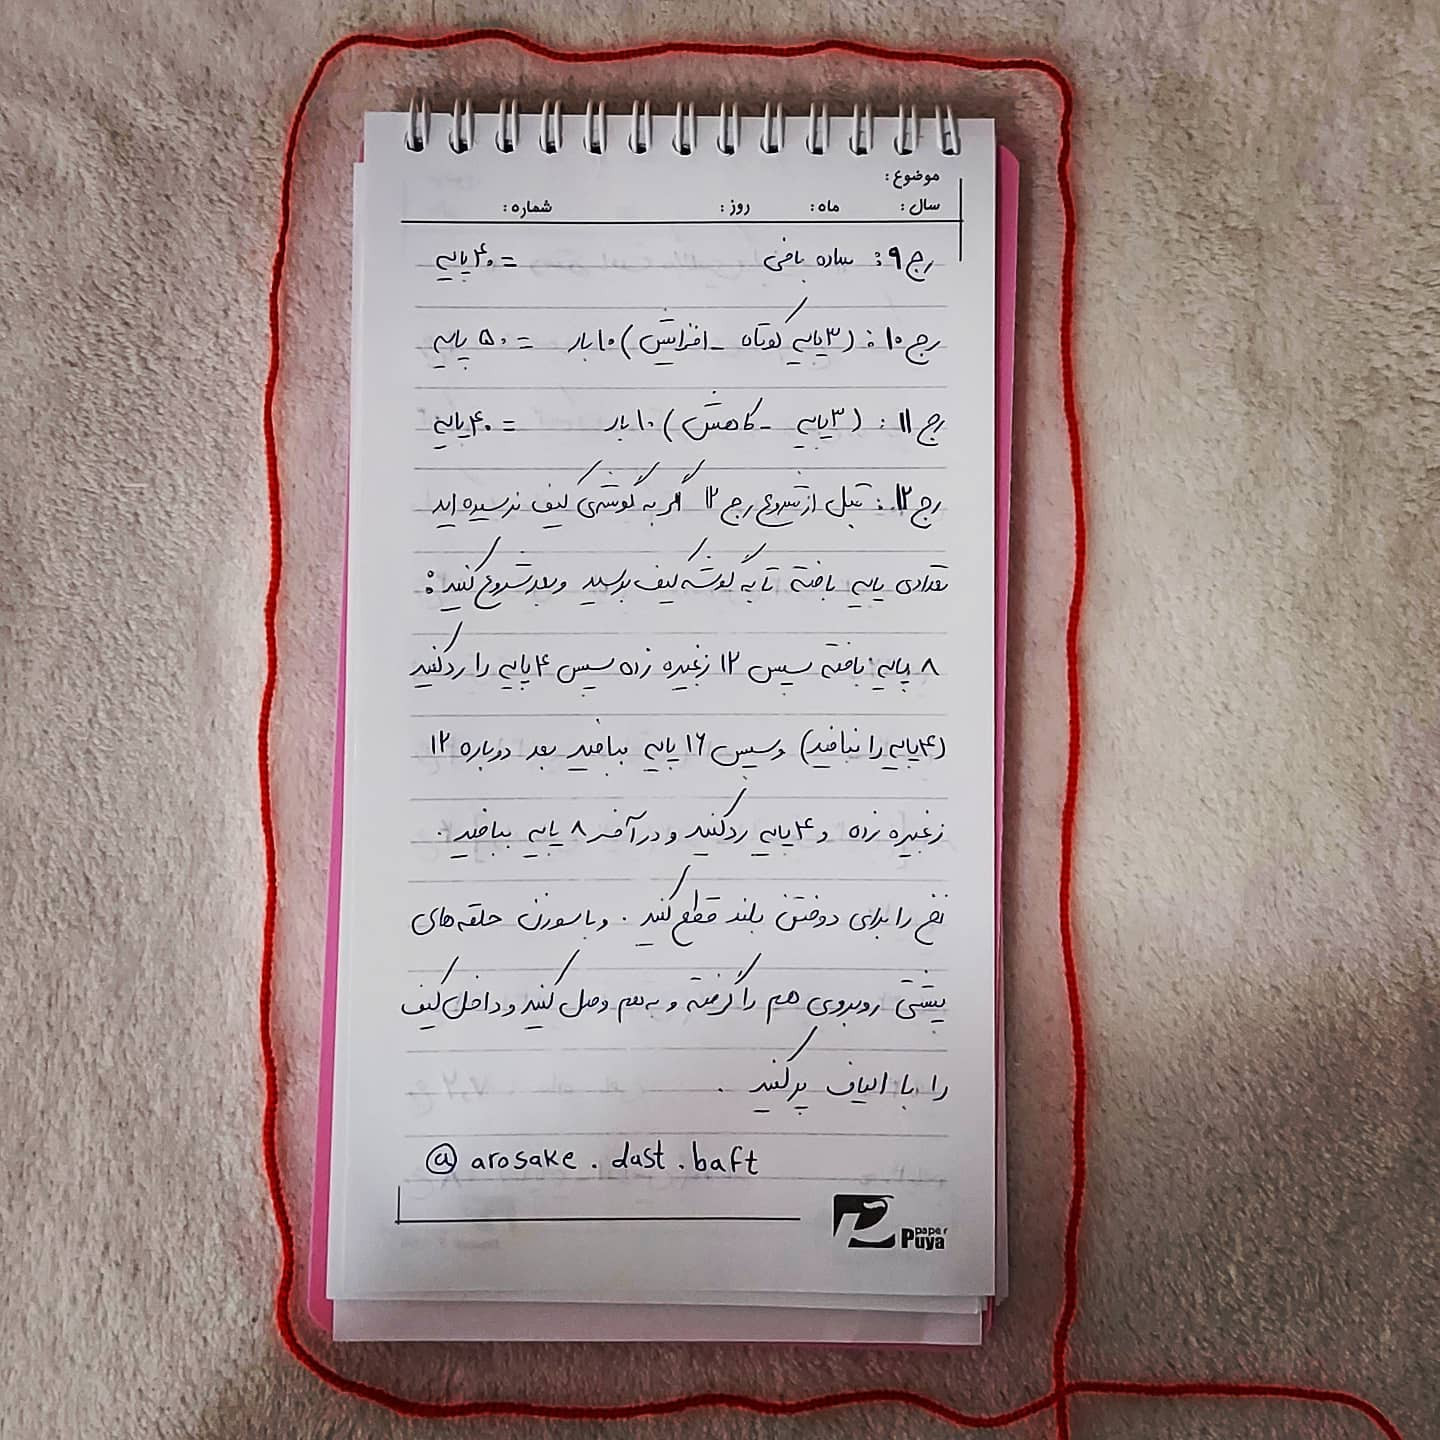 موضوع :
سال : ماه : روز : شماره :
رج ۹ : ساده بافی = ۴۰ پایه
رج ۱۰ : (۳ پایه کوتاه - افزایش) ۱۰ بار = ۵۰ پایه
رج ۱۱ : (۳ پایه - کاهش) ۱۰ بار = ۴۰ پایه
رج ۱۲ : قبل از شروع رج ۱۲ اگر به گوشه‌ی کیف نرسیده اید
تعدادی پایه بافته تا به گوشه کیف برسید و بعد شروع کنید :
۸ پایه بافته سپس ۱۲ زنجیره زده سپس ۴ پایه را رد کنید
(۴ پایه را نبافید) و سپس ۱۶ پایه ببافید بعد دوباره ۱۲
زنجیره زده و ۴ پایه رد کنید و در آخر ۸ پایه ببافید .
نخ را برای دوختن بلند قطع کنید . و با سوزن حلقه های
پشتی روبروی هم را گرفته و به هم وصل کنید و داخل کیف
را با الیاف پر کنید .
@arosake.dast.baft
paper
Puya